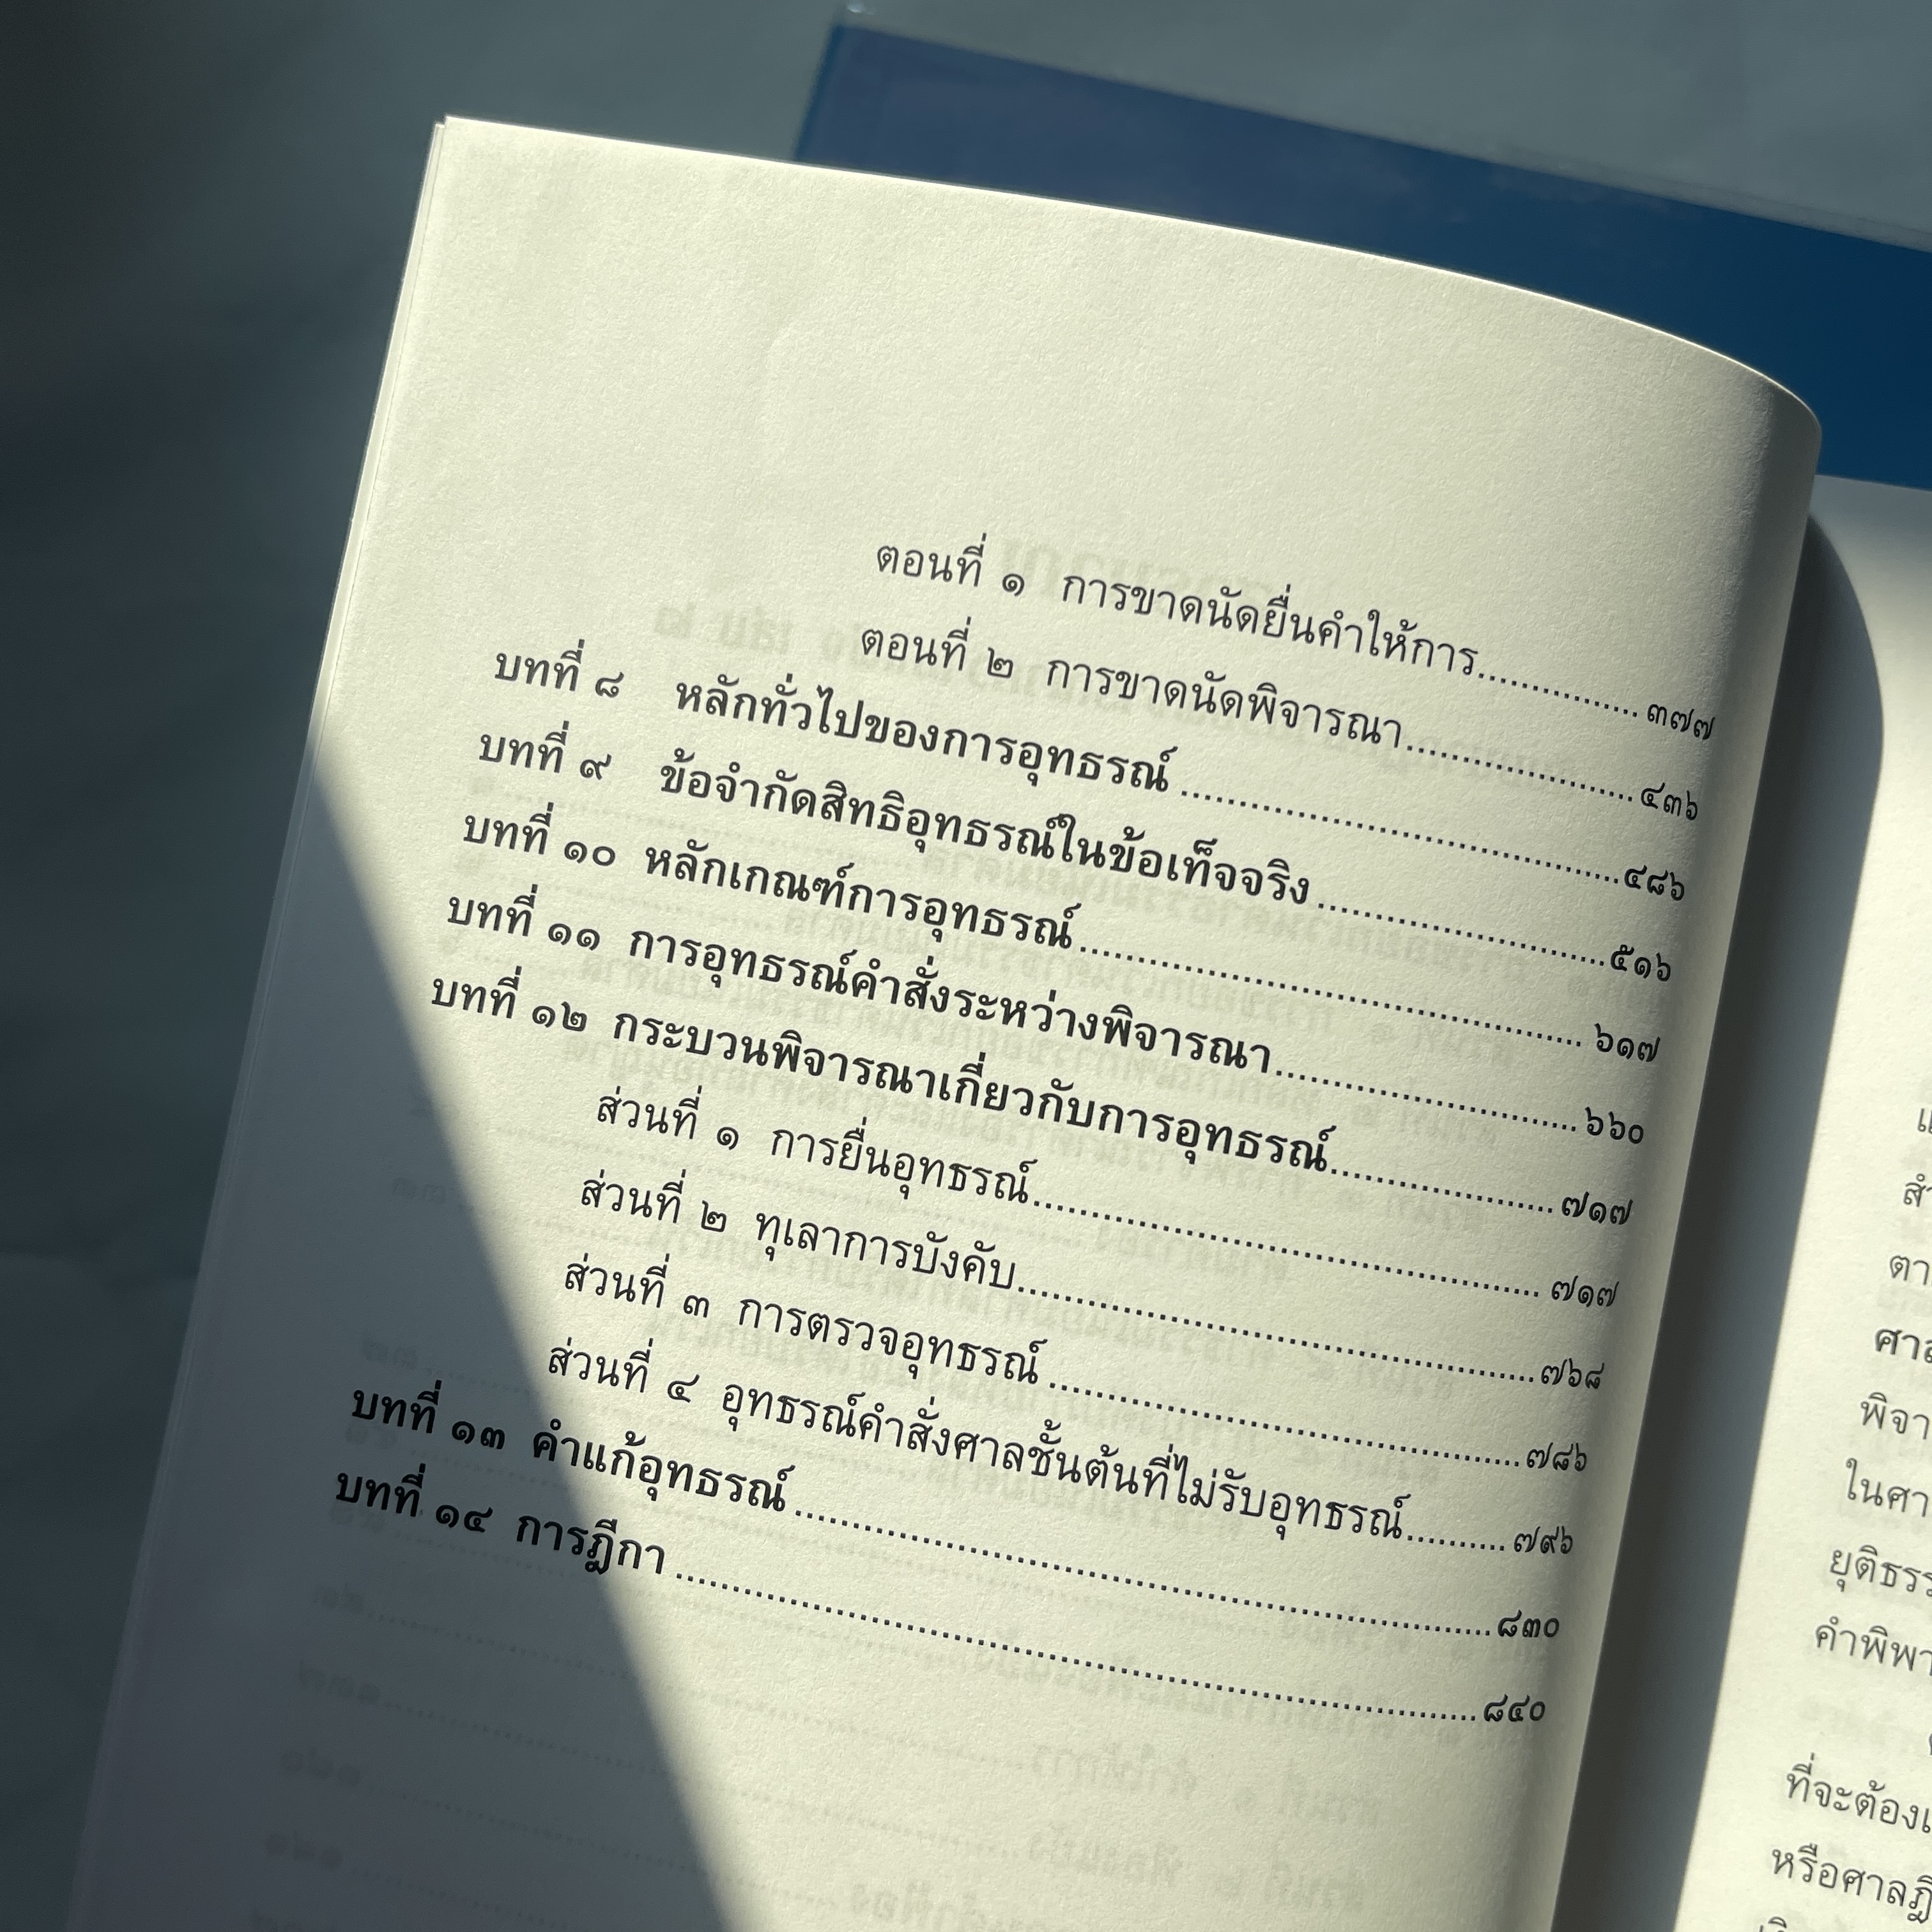 ตอนที่ ๑ การขาดนัดยื่นคำให้การ............... ๓๗๗
ตอนที่ ๒ การขาดนัดพิจารณา.....................๔๓๖
บทที่ ๘ หลักทั่วไปของการอุทธรณ์ ........................................๔๘๖
บทที่ ๙ ข้อจำกัดสิทธิอุทธรณ์ในข้อเท็จจริง ..........................๕๑๖
บทที่ ๑๐ หลักเกณฑ์การอุทธรณ์............................................... ๖๑๗
บทที่ ๑๑ การอุทธรณ์คำสั่งระหว่างพิจารณา............................๖๖๐
บทที่ ๑๒ กระบวนพิจารณาเกี่ยวกับการอุทธรณ์.....................๗๑๗
ส่วนที่ ๑ การยื่นอุทธรณ์............................................... ๗๑๗
ส่วนที่ ๒ ทุเลาการบังคับ................................................๗๖๘
ส่วนที่ ๓ การตรวจอุทธรณ์ ............................................๗๘๖
ส่วนที่ ๔ อุทธรณ์คำสั่งศาลชั้นต้นที่ไม่รับอุทธรณ์.........๗๙๖
บทที่ ๑๓ คำแก้อุทธรณ์................................................................๘๓๐
บทที่ ๑๔ การฎีกา .........................................................................๘๔๐
สำ
ตา
ศาล
พิจา
ในศา
ยุติธรร
คำพิพา
ที่จะต้องเ
หรือศาลฎี